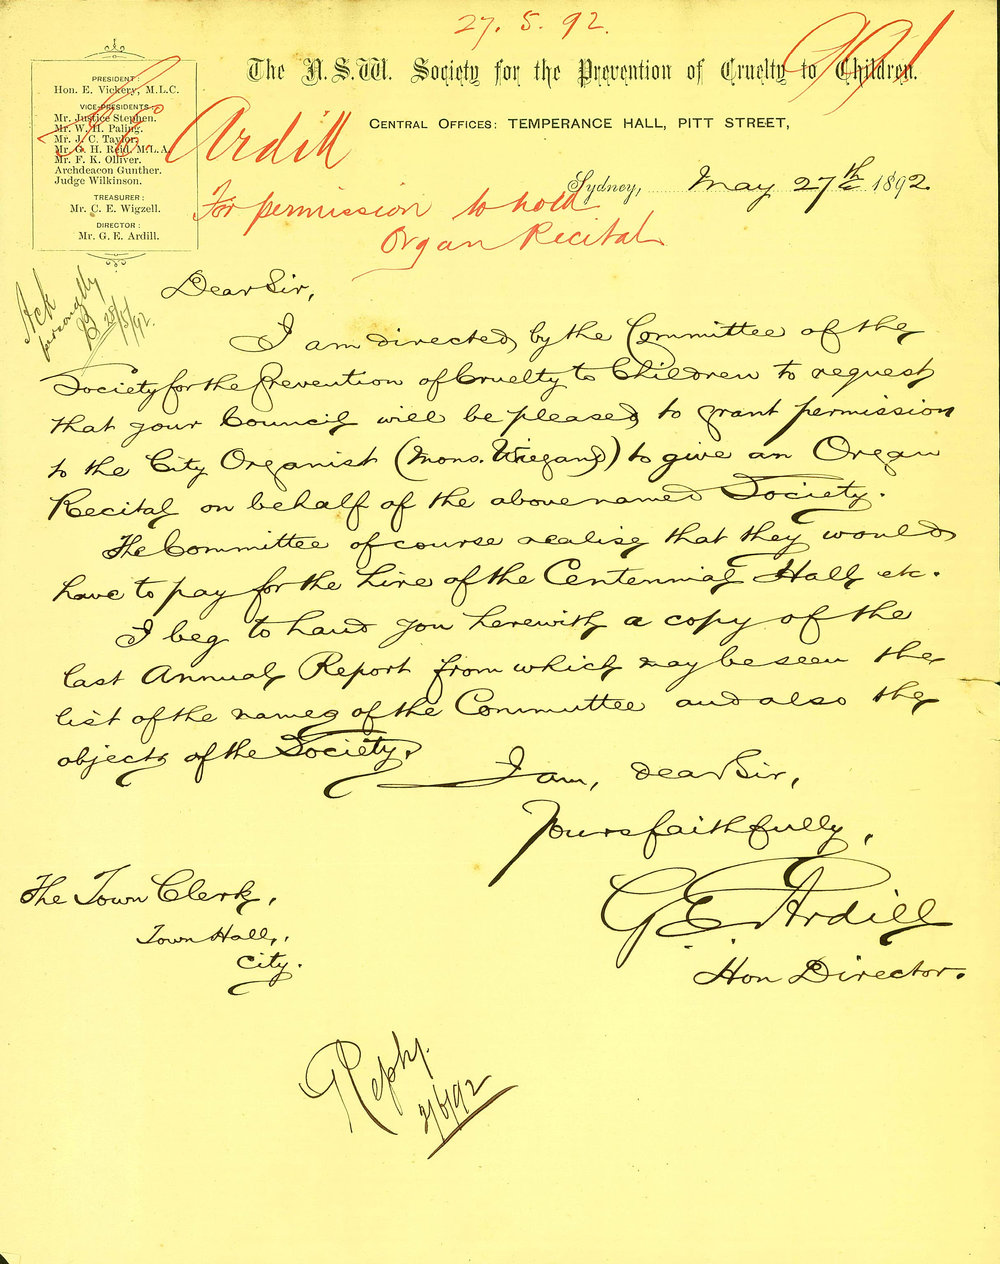 27. 5. 92.
The N.S.W. Society for the Prevention of Cruelty to Children.
CENTRAL OFFICES: TEMPERANCE HALL, PITT STREET,
PRESIDENT:
Hon. E. Vickery, M.L.C.
VICE-PRESIDENTS:
Mr. Justice Stephen.
Mr. W. H. Paling.
Mr. J. C. Taylor.
Mr. G. H. Reid, M.L.A.
Mr. F. K. Olliver.
Archdeacon Gunther.
Judge Wilkinson.
TREASURER:
Mr. C. E. Wigzell.
DIRECTOR:
Mr. G. E. Ardill.
Ardill
For permission to hold
Organ Recital
Sydney, May 27th 1892.
Ack
personally
28/5/92.
Dear Sir,
I am directed by the Committee of the
Society for the Prevention of Cruelty to Children to request
that your Council will be pleased to grant permission
to the City Organist (Mons. Wiegand) to give an Organ
Recital on behalf of the above named Society.
The Committee of course realise that they would
have to pay for the hire of the Centennial Hall etc.
I beg to hand you herewith a copy of the
last Annual Report from which may be seen the
list of the names of the Committee and also the
objects of the Society.
I am, dear Sir,
Yours faithfully,
G E Ardill
Hon Director.
The Town Clerk,
Town Hall,
City.
Reply.
2/6/92